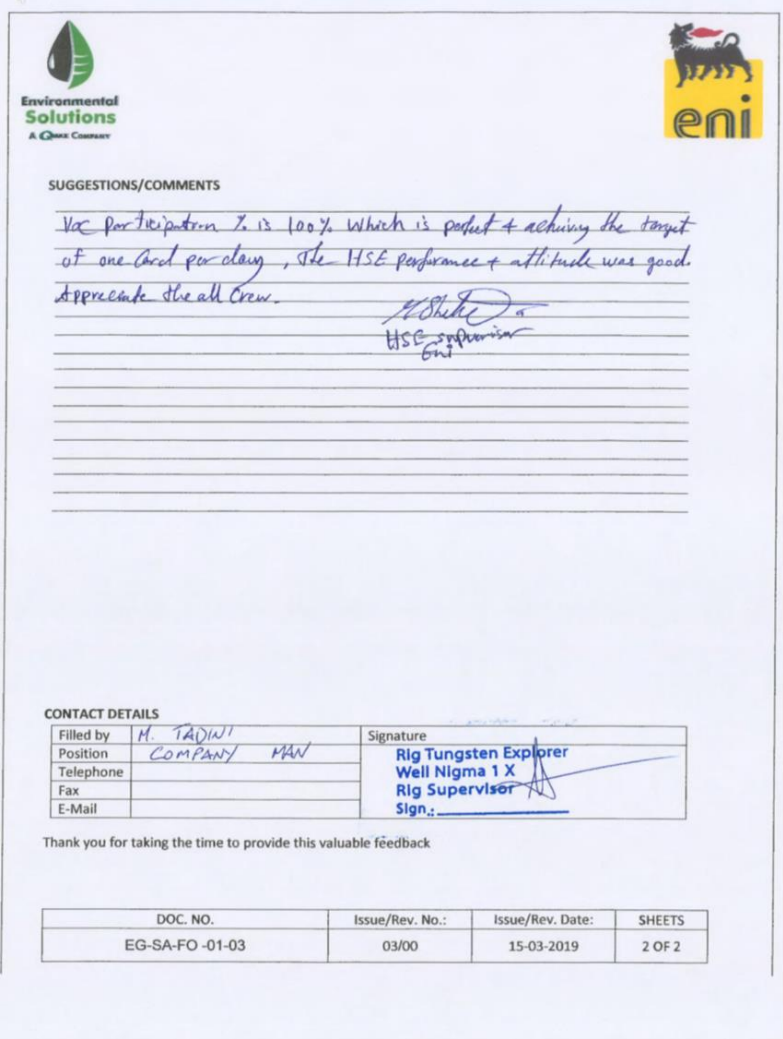 Environmental
Solutions
A QMAX COMPANY
eni
SUGGESTIONS/COMMENTS
Voc participation % is 100% which is perfect + achiving the target
of one Card per day, The HSE performance + attitude was good.
Appreciate the all Crew.
HSE supervisor
Eni
CONTACT DETAILS
Filled by M. TADINI Signature
Position COMPANY MAN
Telephone
Fax
E-Mail
Rig Tungsten Explorer
Well Nigma 1 X
Rig Supervisor
Sign.:
Thank you for taking the time to provide this valuable feedback
DOC. NO. Issue/Rev. No.: Issue/Rev. Date: SHEETS
EG-SA-FO -01-03 03/00 15-03-2019 2 OF 2